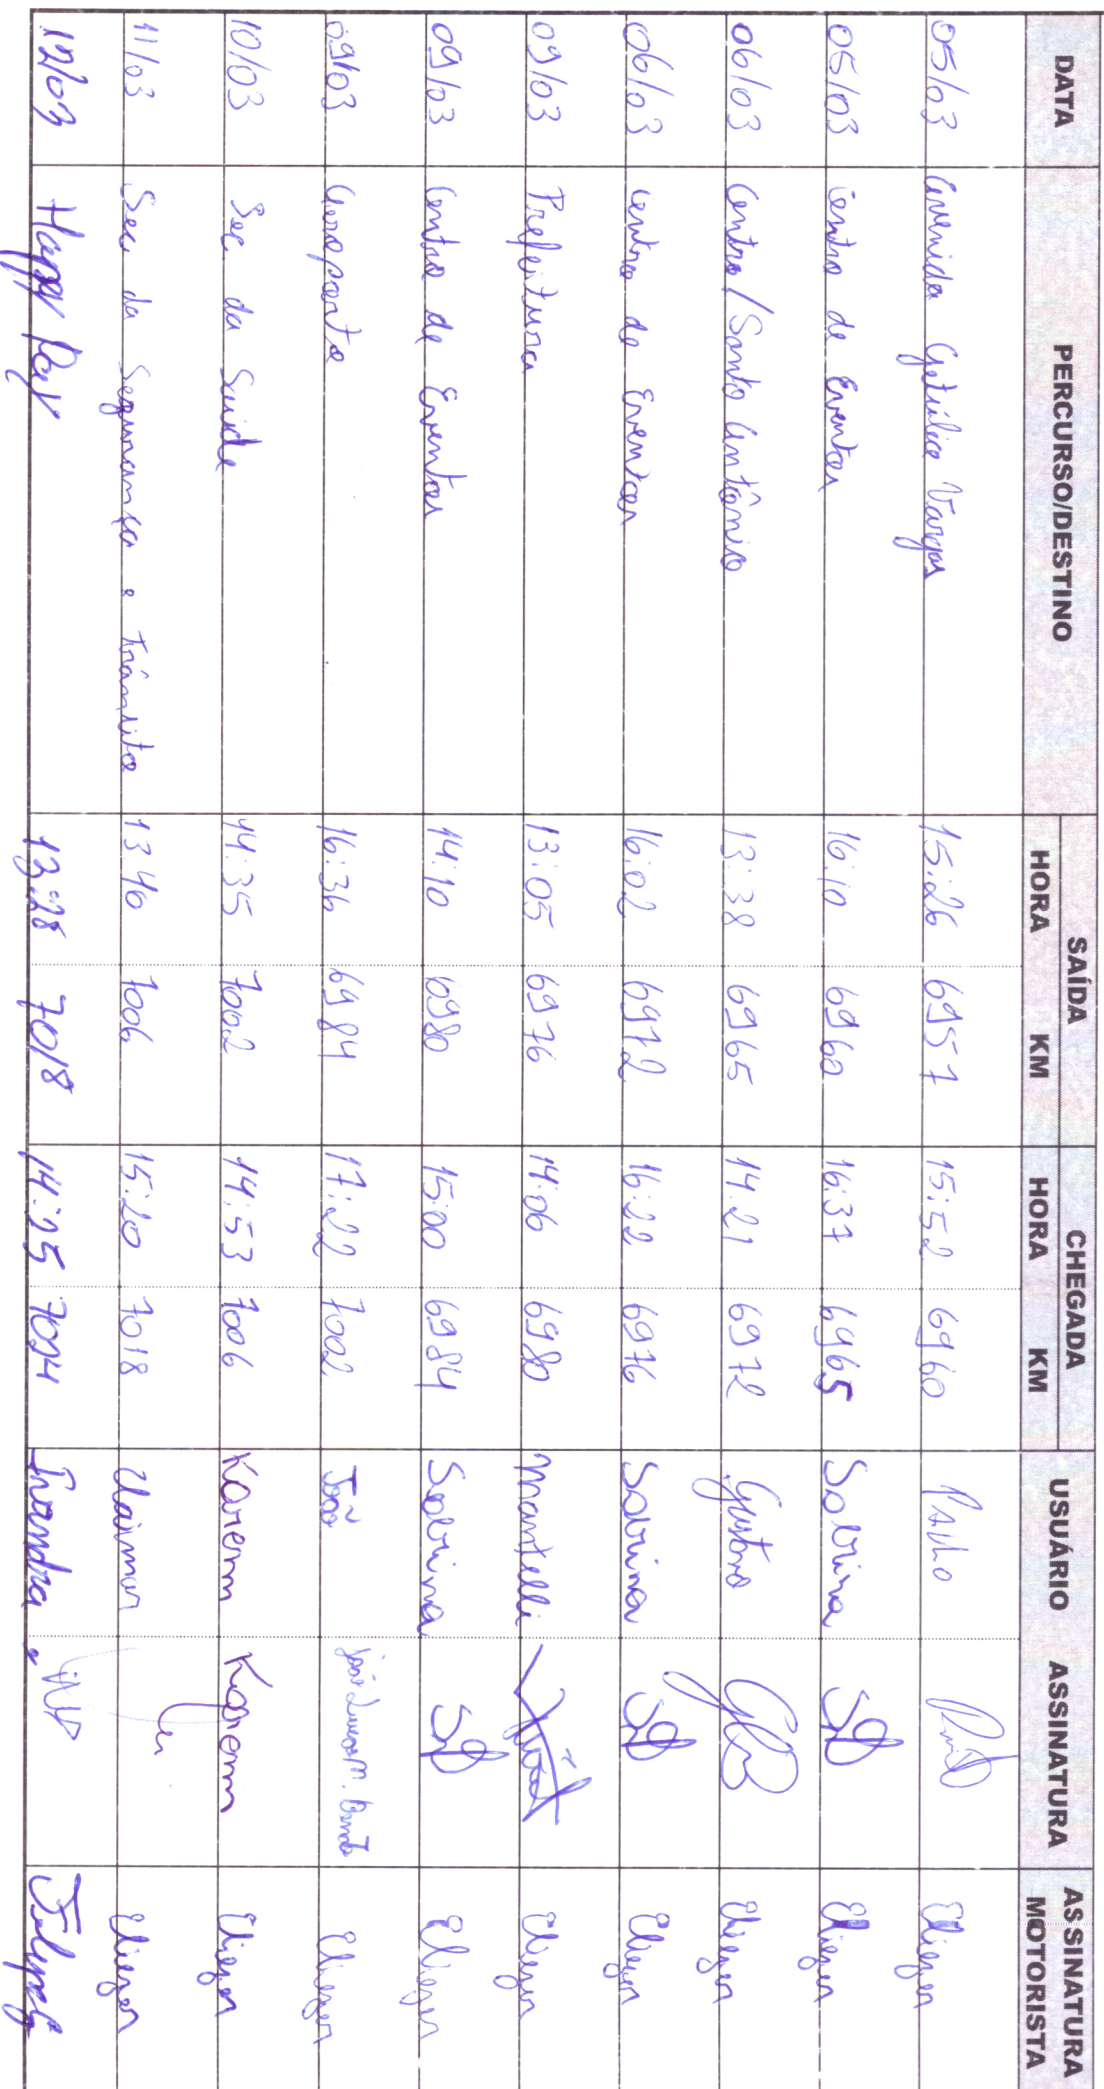 DATA PERCURSO/DESTINO SAÍDA CHEGADA USUÁRIO ASSINATURA ASSINATURA MOTORISTA
HORA KM HORA KM
05/03 Avenida Getúlio Vargas 15:26 6957 15:52 6960 PAULO Eliezer
05/03 Centro de Eventos 16:10 6960 16:37 6965 Sabrina Eliezer
06/03 Centro/Santo Antônio 13:38 6965 14:21 6972 Gustavo Eliezer
06/03 Centro de Eventos 16:02 6972 16:22 6976 Sabrina Eliezer
09/03 Prefeitura 13:05 6976 14:06 6980 Mantelli Eliezer
09/03 Centro de Eventos 14:10 6980 15:00 6984 Sabrina Eliezer
09/03 Aeroporto 16:36 6984 17:22 7002 João João Lucas M. Eliezer
10/03 Sec da Saúde 14:35 7002 14:53 7006 Karem Karem Eliezer
11/03 Sec da Segurança e Trânsito 13:40 7006 15:20 7018 Eliezer
12/03 Happy Day 13:28 7018 14:25 7094